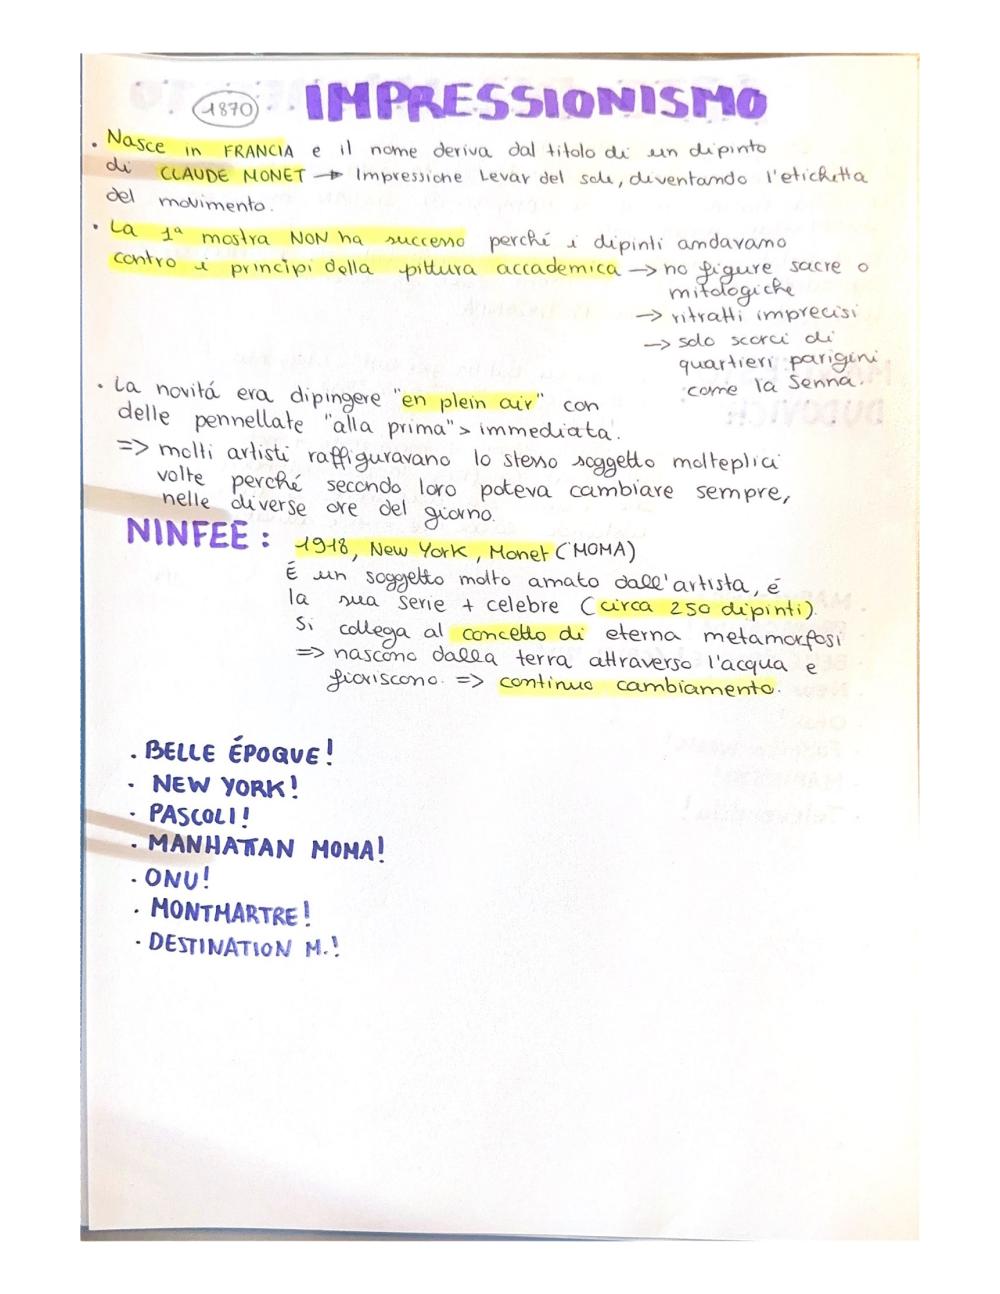 1870 IMPRESSIONISMO
• Nasce in FRANCIA e il nome deriva dal titolo di un dipinto
di CLAUDE MONET → Impressione Levar del sole, diventando l'etichetta
del movimento.
• La 1ª mostra NON ha successo perché i dipinti andavano
contro i principi della pittura accademica → no figure sacre o
mitologiche
→ ritratti imprecisi
→ solo scorci di
quartieri parigini
come la Senna.
• La novitá era dipingere "en plein air" con
delle pennellate "alla prima" > immediata.
=> molti artisti raffiguravano lo stesso soggetto molteplici
volte perché secondo loro poteva cambiare sempre,
nelle diverse ore del giorno.
NINFEE: 1918, New York, Monet (MOMA)
É un soggetto molto amato dall'artista, é
la sua serie + celebre (circa 250 dipinti).
Si collega al concetto di eterna metamorfosi
=> nascono dalla terra attraverso l'acqua e
fioriscono. => continuo cambiamento.
• BELLE ÉPOQUE!
• NEW YORK!
• PASCOLI!
• MANHATTAN MOMA!
• ONU!
• MONTMARTRE!
• DESTINATION M.!